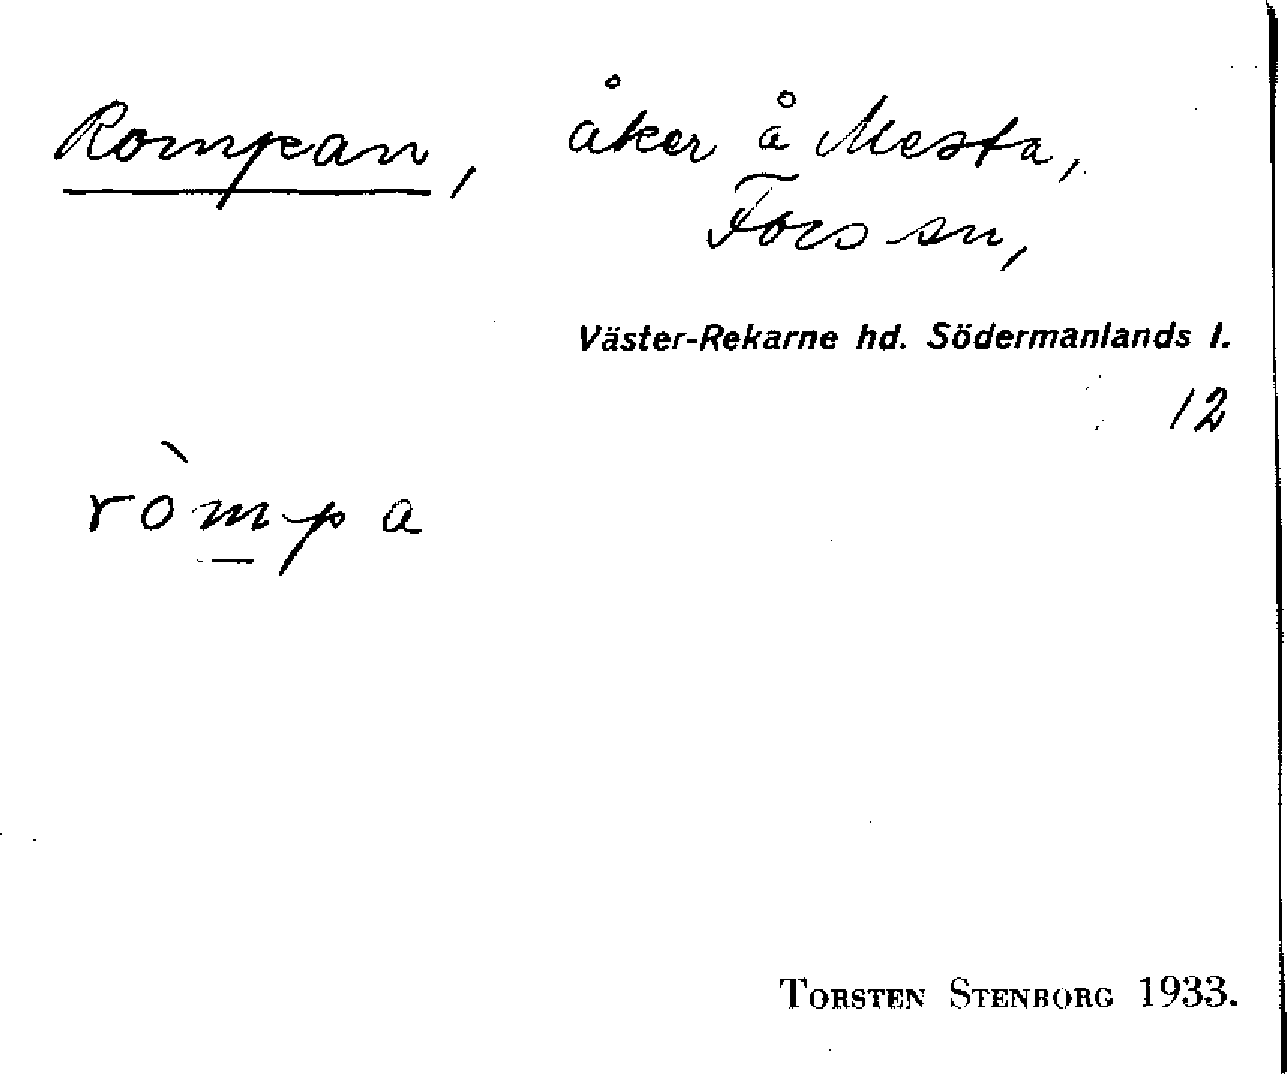 Rompan, åker å Mesta,
Fors sn,
Väster-Rekarne hd. Södermanlands l.
12
ròmpa
TORSTEN STENBORG 1933.